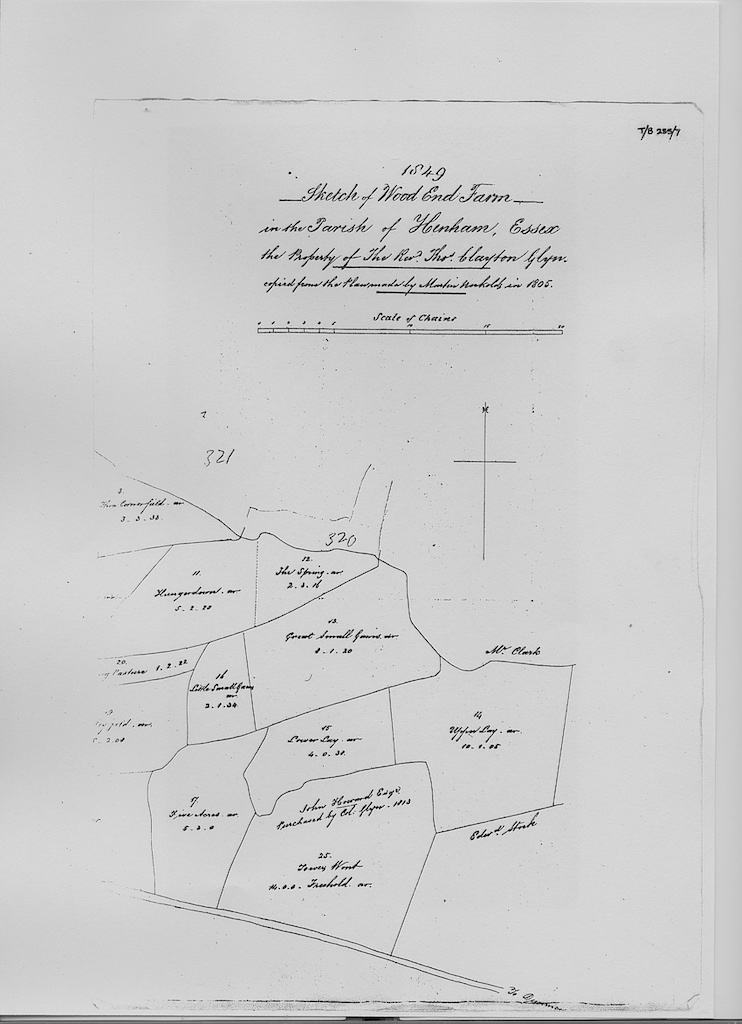 T/B 235/7
1849
Sketch of Wood End Farm
in the Parish of Henham, Essex
the Property of The Revd. Thos. Clayton Glyn.
copied from the Plan made by Martin in 1805.
Scale of Chains
0 1 2 3 4 5 10 15 20
321
3.
Cornerfield - ar.
3 - 3 - 33
320
12.
The Spring - ar.
2 - 3 - 16
11.
Hungerdown - ar
5 - 2 - 20
13.
Great Small Gains. ar.
8 - 1 - 20
Mr. Clark
20.
Pasture 1 - 2 - 22
16
Little Small Gains
ar.
2 - 1 - 34
14
Upper Lay - ar.
10 - 1 - 05
15
Lower Lay - ar
4 - 0 - 31
7.
Five Acres - ar
5 - 3 - 0
John Howard Esqr.
Purchased by Col. Glyn - 1813
Edwd. Stock
25.
Wont
14 - 0 - 0 - Freehold ar.
To Dunmow